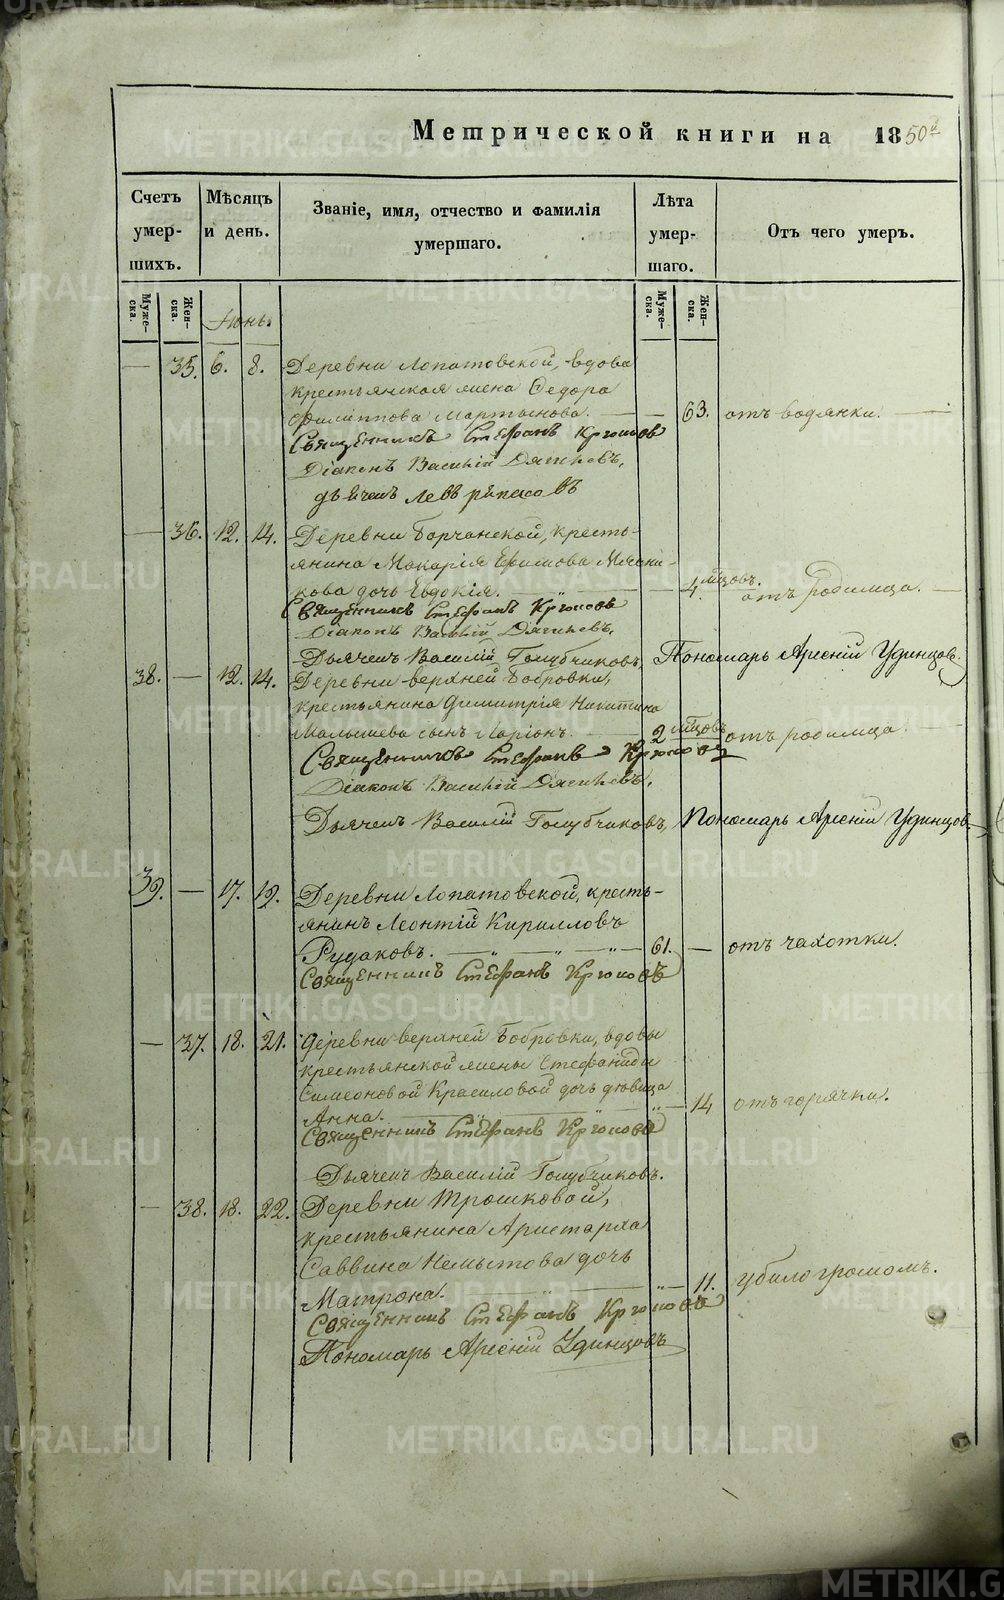 Метрической книги на 1850й
Счетъ умер-шихъ.
Мѣсяцъ и день.
Званіе, имя, отчество и фамилія умершаго.
Лѣта умер-шаго.
Отъ чего умеръ.
Муже-ска.
Жен-ска.
Муже-ска.
Жен-ска.
Іюнь.
— 35. 6. 8. Деревни Лопатовской, вдова
крестьянская жена Ѳедора
Филиппова Мартынова. — — 63. отъ водянки.
Священникъ Стефанъ Крюковъ
Діаконъ Василій
Левъ
— 36. 12. 14. Деревни Борчанской, кресть-
янина Макарія Ефимова Мясни-
кова дочь Евдокія. — 4. мѣсцовъ. отъ родимца. —
Священникъ Стефанъ Крюковъ
Діаконъ Василій
Дьячекъ Василій Голубчиковъ, Пономарь Арсеній Удинцовъ.
38. — 12. 14. Деревни верхней Бобровки,
крестьянина Димитрія Никитина
Малышева сынъ Ларіонъ. — 2 мѣсцовъ отъ родимца. —
Священникъ Стефанъ Крюковъ
Діаконъ Василій
Дьячекъ Василій Голубчиковъ, Пономарь Арсеній Удинцовъ
39. — 17. 19. Деревни Лопатовской, кресть-
янинъ Леонтій Кирилловъ
Рудаковъ. — 61. — отъ чахотки.
Священникъ Стефанъ Крюковъ
— 37. 18. 21. Деревни верхней Бобровки, вдовы
крестьянской жены Стефаниды
Симеоновой Красиловой дочь дѣвица
Анна. — 14 отъ горячки.
Священникъ Стефанъ Крюковъ
Дьячекъ Василій Голубчиковъ.
— 38. 18. 22. Деревни Трошковой,
крестьянина Аристарха
Саввина Кемытова дочь
Матрона. — 11. убило громомъ.
Священникъ Стефанъ Крюковъ
Пономарь Арсеній Удинцовъ
METRIKI.GASO-URAL.RU